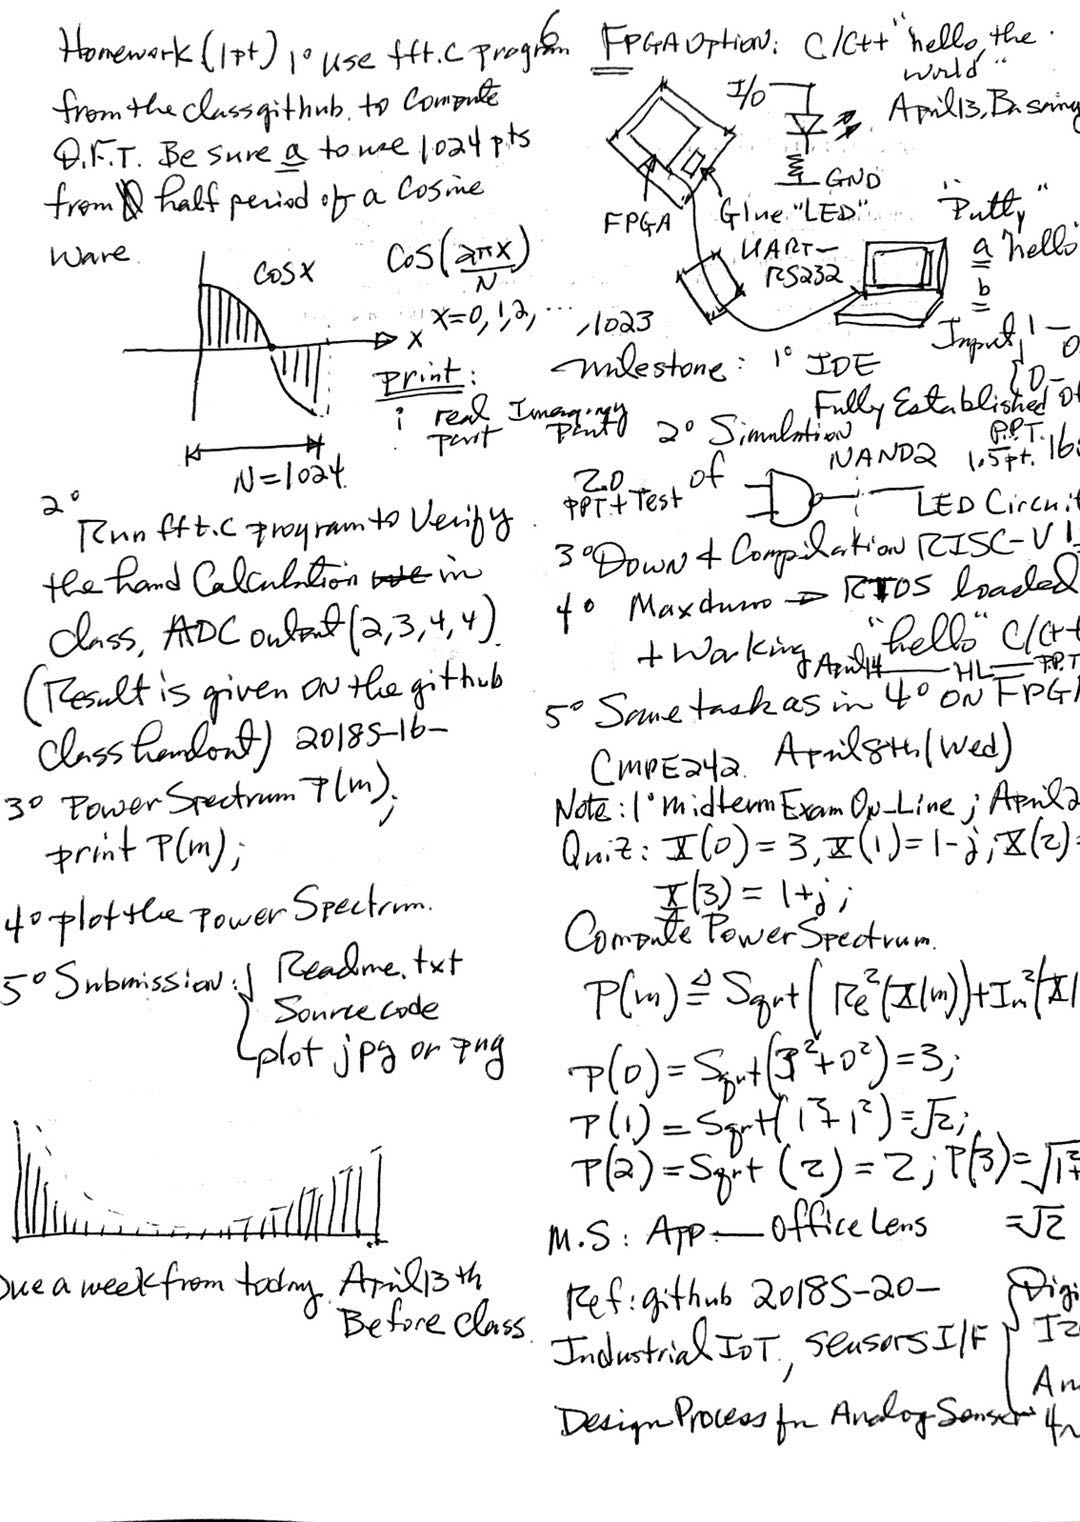 Homework (1pt) 1° Use fft.c program
from the class github. to Compute
D.F.T. Be sure a to use 1024 pts
from half period of a Cosine
Wave
Cos x
Cos(2πx/N)
x
x=0,1,2, ... ,1023
print:
i real part Imaginary part
N=1024.
2°
Run fft.c program to Verify
the hand Calculation in
class, ADC output (2,3,4,4).
(Result is given on the github
Class handout) 2018S-16-
3° Power Spectrum P(m);
print P(m);
4° plot the Power Spectrum.
5° Submission: { Readme.txt
Source code
plot jpg or png
Due a week from today. April 13th
Before Class.
6
FPGA Option: C/C++ "hello, the
world"
April 13,
I/O
GND
FPGA
Glue "LED"
UART-
RS232
"Putty"
a "hello"
b
Input 1-
0-
milestone: 1° IDE
Fully Established
2° Simulation
NAND2
P.P.T.
1.5pt.
2.0
PPT+Test
of
LED Circuit
3° Down & Compilation RISC-V
4° → RTOS loaded
+ Working "hello" C/C++
April 14 — HL — P.P.T
5° Same task as in 4° ON FPGA
CMPE242. April 8th (Wed)
Note: 1° midterm Exam On-Line; April 2
Quiz: X(0)=3, X(1)=1-j, X(2)=
X(3)=1+j;
Compute Power Spectrum.
P(m) ≜ Sqrt(Re²(X(m))+Im²(X(
P(0)=Sqrt(3²+0²)=3;
P(1)=Sqrt(1²+1²)=√2;
P(2)=Sqrt(2)=2; P(3)=√1²+
=√2
M.S: App — Office Lens
Ref: github 2018S-20-
Industrial IoT, sensors I/F
Digi
I2
An
Design Process for Analog Sensor